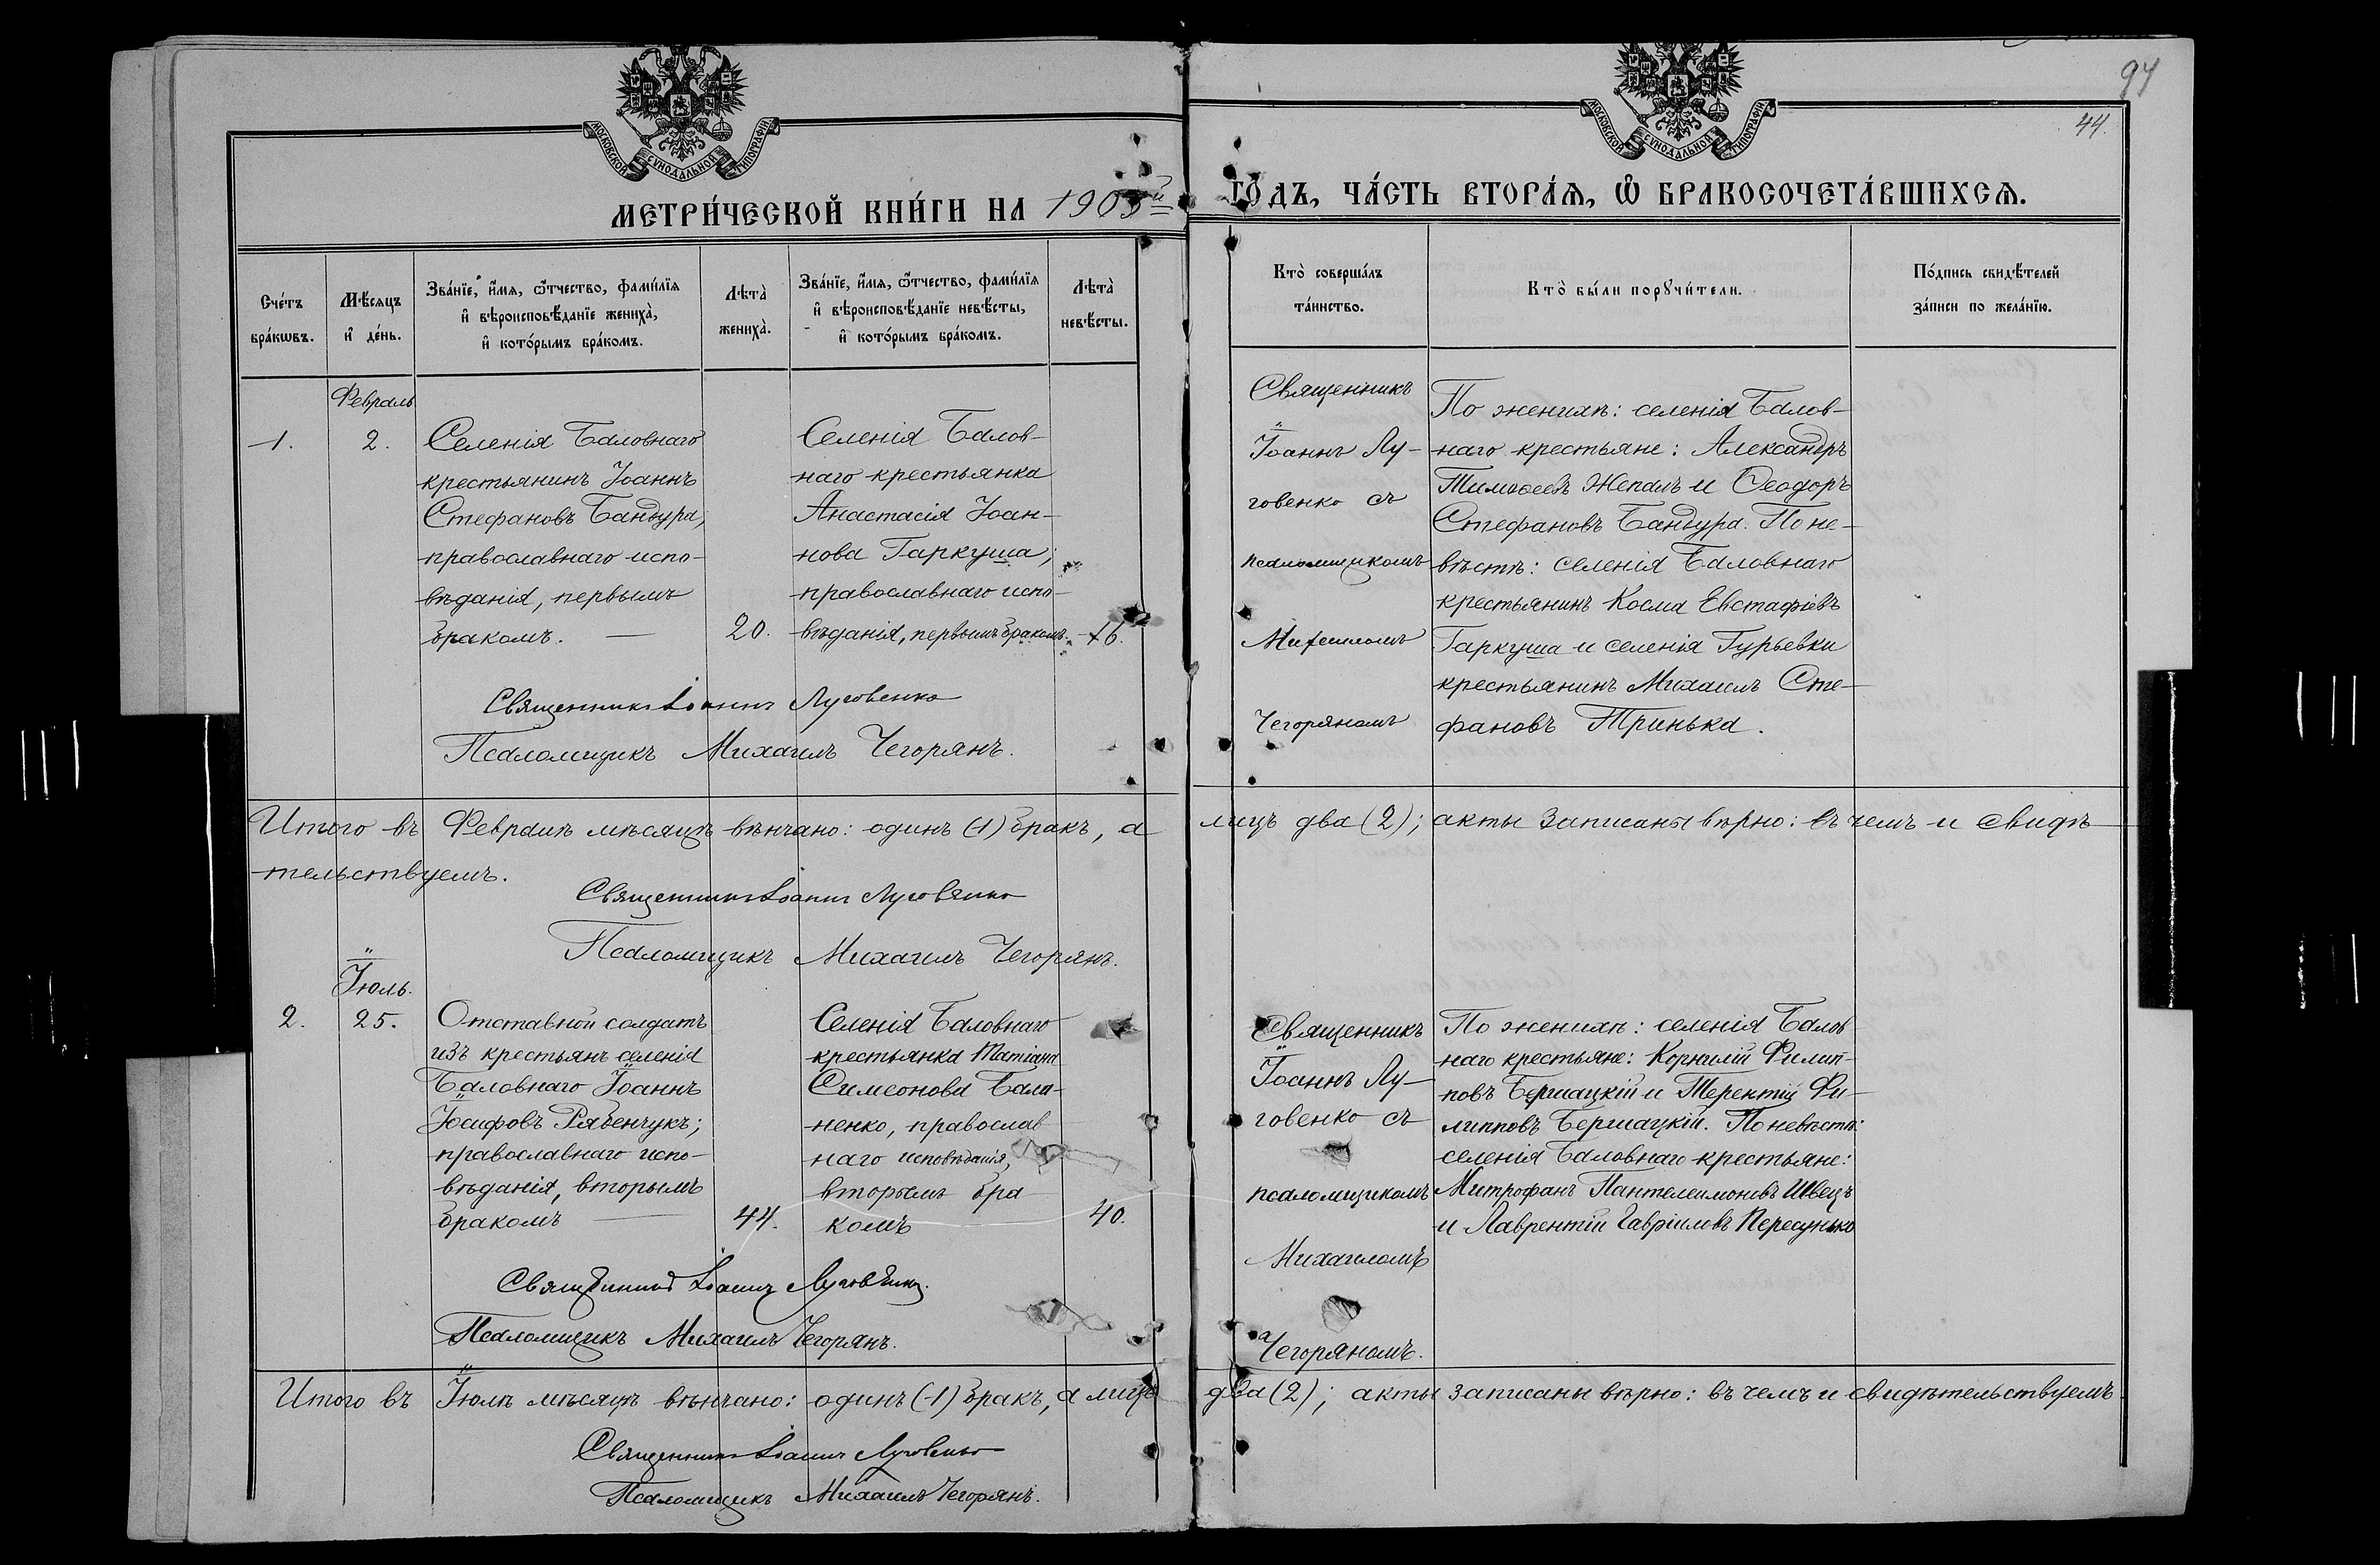 МОСКОВСКОЙ СѴНОДАЛЬНОЙ ТИПОГРАФІИ
МОСКОВСКОЙ СѴНОДАЛЬНОЙ ТИПОГРАФІИ
94
44.
МЕТРИ́ЧЕСКОЙ КНИ́ГИ НА 1905й
ГО́ДЪ, ЧА́СТЬ ВТОРА́Ѧ, Ѽ БРАКОСОЧЕТА́ВШИХСѦ.
Сче́тъ
бра́кѡвъ.
Мѣ́сѧцъ
и҆ де́нь.
Зва́нїе, и҆́мѧ, ѻ҆́тчество, фами́лїѧ
и҆ вѣроисповѣ́данїе жениха̀,
и҆ кото́рымъ бра́комъ.
Лѣта̀
жениха̀.
Зва́нїе, и҆́мѧ, ѻ҆́тчество, фами́лїѧ
и҆ вѣроисповѣ́данїе невѣ́сты,
и҆ кото́рымъ бра́комъ.
Лѣта̀
невѣ́сты.
Кто̀ соверша́лъ
та́инство.
Кто̀ бы́ли порꙋчи́тели.
По́дпись свидѣ́телей
за́писи по жела́нїю.
Февраль
1.
2.
Селенія Баловнаго
крестьянинъ Іоаннъ
Стефановъ Бандура,
православнаго испо-
вѣданія, первымъ
бракомъ. —
20.
Селенія Балов-
наго крестьянка
Анастасія Іоан-
нова Гаркуша;
православнаго испо-
вѣданія, первымъ бракомъ.
16.
Священникъ Іоаннъ Луговенко
Псаломщикъ Михаилъ Чегорянъ.
Священникъ
Іоаннъ Лу-
говенко съ
псаломщикомъ
Михаиломъ
Чегоряномъ
По женихѣ: селенія Балов-
наго крестьяне: Александръ
Тимоѳеевъ Жепалъ и Ѳеодоръ
Стефановъ Бандура. По не-
вѣстѣ: селенія Баловнаго
крестьянинъ Косма Евстафіевъ
Гаркуша и селенія Гурьевки
крестьянинъ Михаилъ Сте-
фановъ Тринька.
Итого въ Февралѣ мѣсяцѣ вѣнчано: одинъ (1) бракъ, а лицъ два (2); акты записаны вѣрно: въ чемъ и свидѣ-
тельствуемъ.
Священникъ Іоаннъ Луговенко
Псаломщикъ Михаилъ Чегорянъ.
Іюль.
2.
25.
Отставной солдатъ
изъ крестьянъ селенія
Баловнаго Іоаннъ
Іосифовъ Рябенчукъ;
православнаго испо-
вѣданія, вторымъ
бракомъ —
44.
Селенія Баловнаго
крестьянка Татіана
Симеонова Бала-
ненко, православ-
наго исповѣданія,
вторымъ бра
комъ
40.
Священникъ Іоаннъ Луговенко.
Псаломщикъ Михаилъ Чегорянъ.
Священникъ
Іоаннъ Лу-
говенко съ
псаломщикомъ
Михаиломъ
Чегоряномъ.
По женихѣ: селенія Балов
наго крестьяне: Корнилій Филип-
повъ Бершацкій и Терентій Фи-
липповъ Бершацкій. По невѣстѣ:
селенія Баловнаго крестьяне:
Митрофанъ Пантелеимоновъ Швецъ
и Лаврентій Гавріиловъ Пересунько
Итого въ Іюлѣ мѣсяцѣ вѣнчано: одинъ (1) бракъ, а лицъ два (2); акты записаны вѣрно: въ чемъ и свидѣтельствуемъ.
Священникъ Іоаннъ Луговенко
Псаломщикъ Михаилъ Чегорянъ.